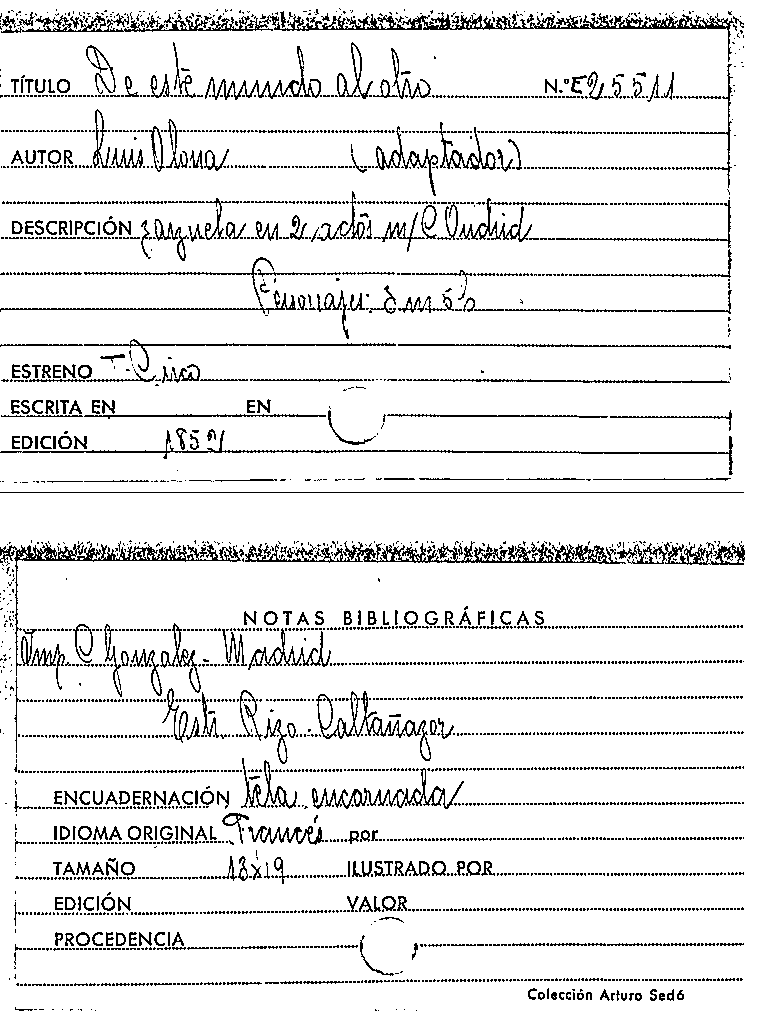 TÍTULO De este mundo al otro N.º E25511
AUTOR Luis Olona (adaptador)
DESCRIPCIÓN zarzuela en 2 actos m/ C Oudrid
Personajes: 8 m 5 h
ESTRENO T. Circo
ESCRITA EN EN
EDICIÓN 1852
NOTAS BIBLIOGRÁFICAS
Imp. C Gonzalez - Madrid
Estr. Rizo - Caltañazor
ENCUADERNACIÓN tela encarnada
IDIOMA ORIGINAL Francés por
TAMAÑO 13x19 ILUSTRADO POR
EDICIÓN VALOR
PROCEDENCIA
Colección Arturo Sedó